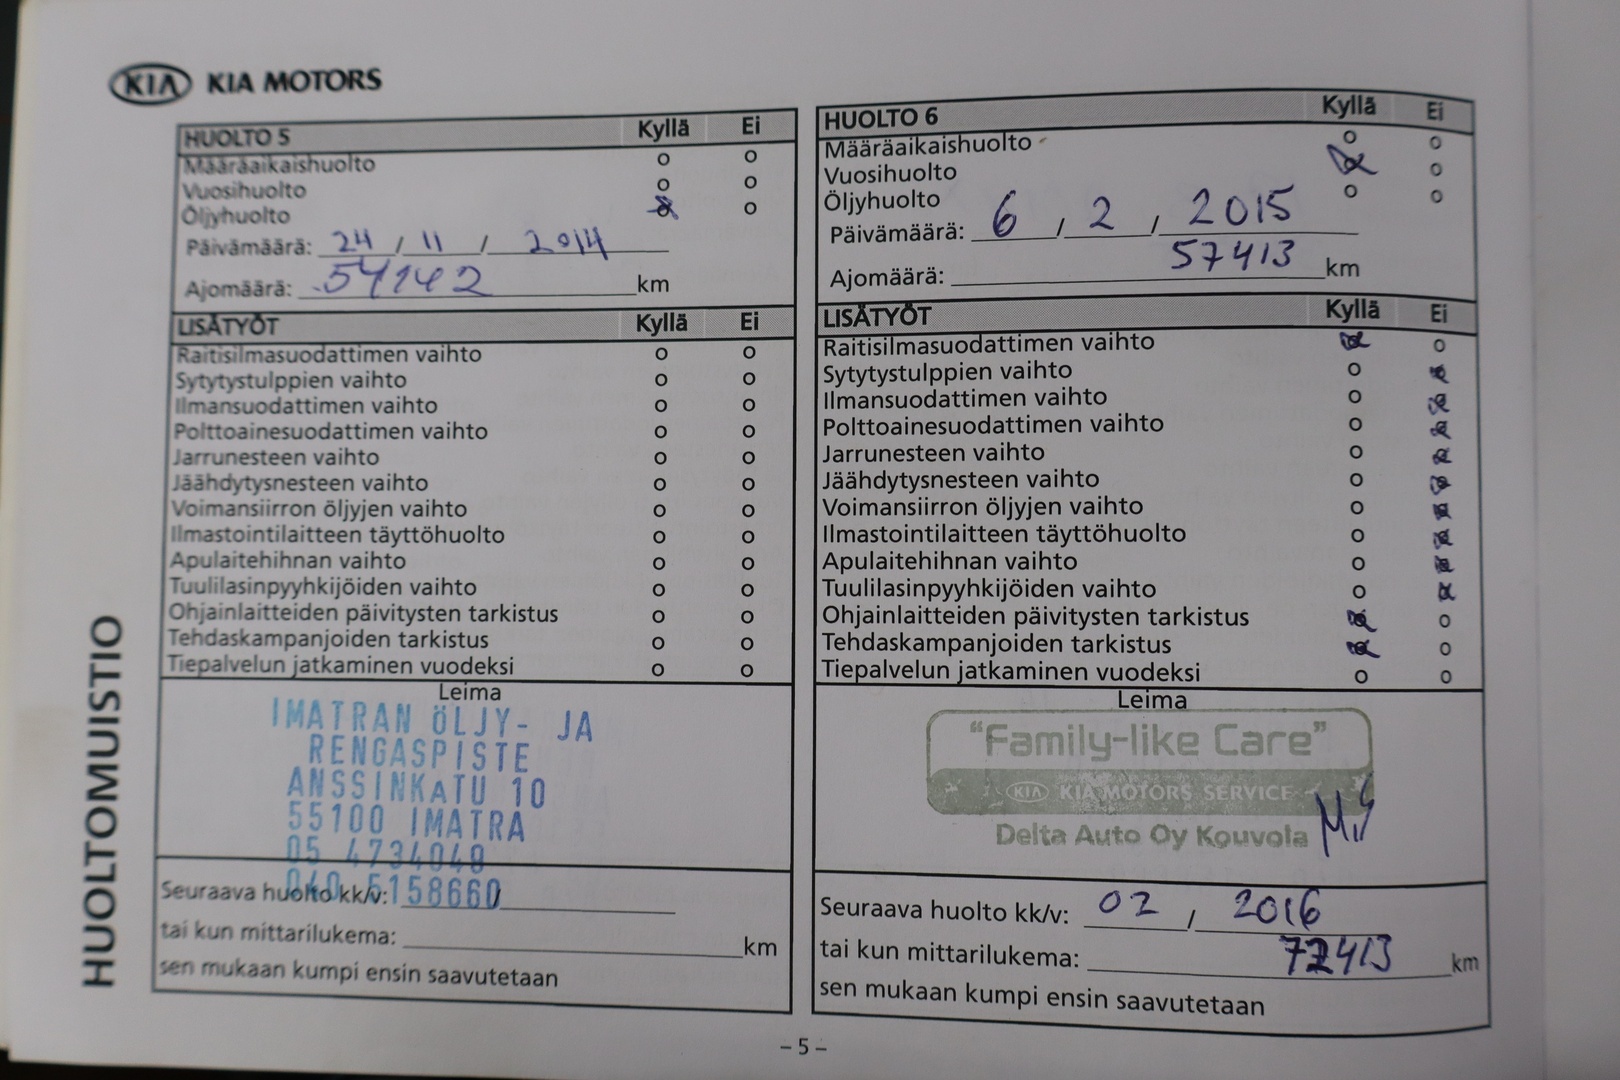 KIA KIA MOTORS
HUOLTO 5 Kyllä Ei
Määräaikaishuolto o o
Vuosihuolto o o
Öljyhuolto o
Päivämäärä: 24 / 11 / 2014
Ajomäärä: 54142 km
LISÄTYÖT Kyllä Ei
Raitisilmasuodattimen vaihto o o
Sytytystulppien vaihto o o
Ilmansuodattimen vaihto o o
Polttoainesuodattimen vaihto o o
Jarrunesteen vaihto o o
Jäähdytysnesteen vaihto o o
Voimansiirron öljyjen vaihto o o
Ilmastointilaitteen täyttöhuolto o o
Apulaitehihnan vaihto o o
Tuulilasinpyyhkijöiden vaihto o o
Ohjainlaitteiden päivitysten tarkistus o o
Tehdaskampanjoiden tarkistus o o
Tiepalvelun jatkaminen vuodeksi o o
Leima
IMATRAN ÖLJY- JA
RENGASPISTE
ANSSINKATU 10
55100 IMATRA
05 4734040
040 5158660
Seuraava huolto kk/v: /
tai kun mittarilukema: km
sen mukaan kumpi ensin saavutetaan
HUOLTO 6 Kyllä Ei
Määräaikaishuolto o o
Vuosihuolto o
Öljyhuolto o o
Päivämäärä: 6 / 2 / 2015
Ajomäärä: 57413 km
LISÄTYÖT Kyllä Ei
Raitisilmasuodattimen vaihto o
Sytytystulppien vaihto o
Ilmansuodattimen vaihto o
Polttoainesuodattimen vaihto o
Jarrunesteen vaihto o
Jäähdytysnesteen vaihto o
Voimansiirron öljyjen vaihto o
Ilmastointilaitteen täyttöhuolto o
Apulaitehihnan vaihto o
Tuulilasinpyyhkijöiden vaihto o
Ohjainlaitteiden päivitysten tarkistus o
Tehdaskampanjoiden tarkistus o
Tiepalvelun jatkaminen vuodeksi o o
Leima
"Family-like Care"
KIA KIA MOTORS SERVICE
Delta Auto Oy Kouvola
Seuraava huolto kk/v: 02 / 2016
tai kun mittarilukema: 72413 km
sen mukaan kumpi ensin saavutetaan
HUOLTOMUISTIO
– 5 –